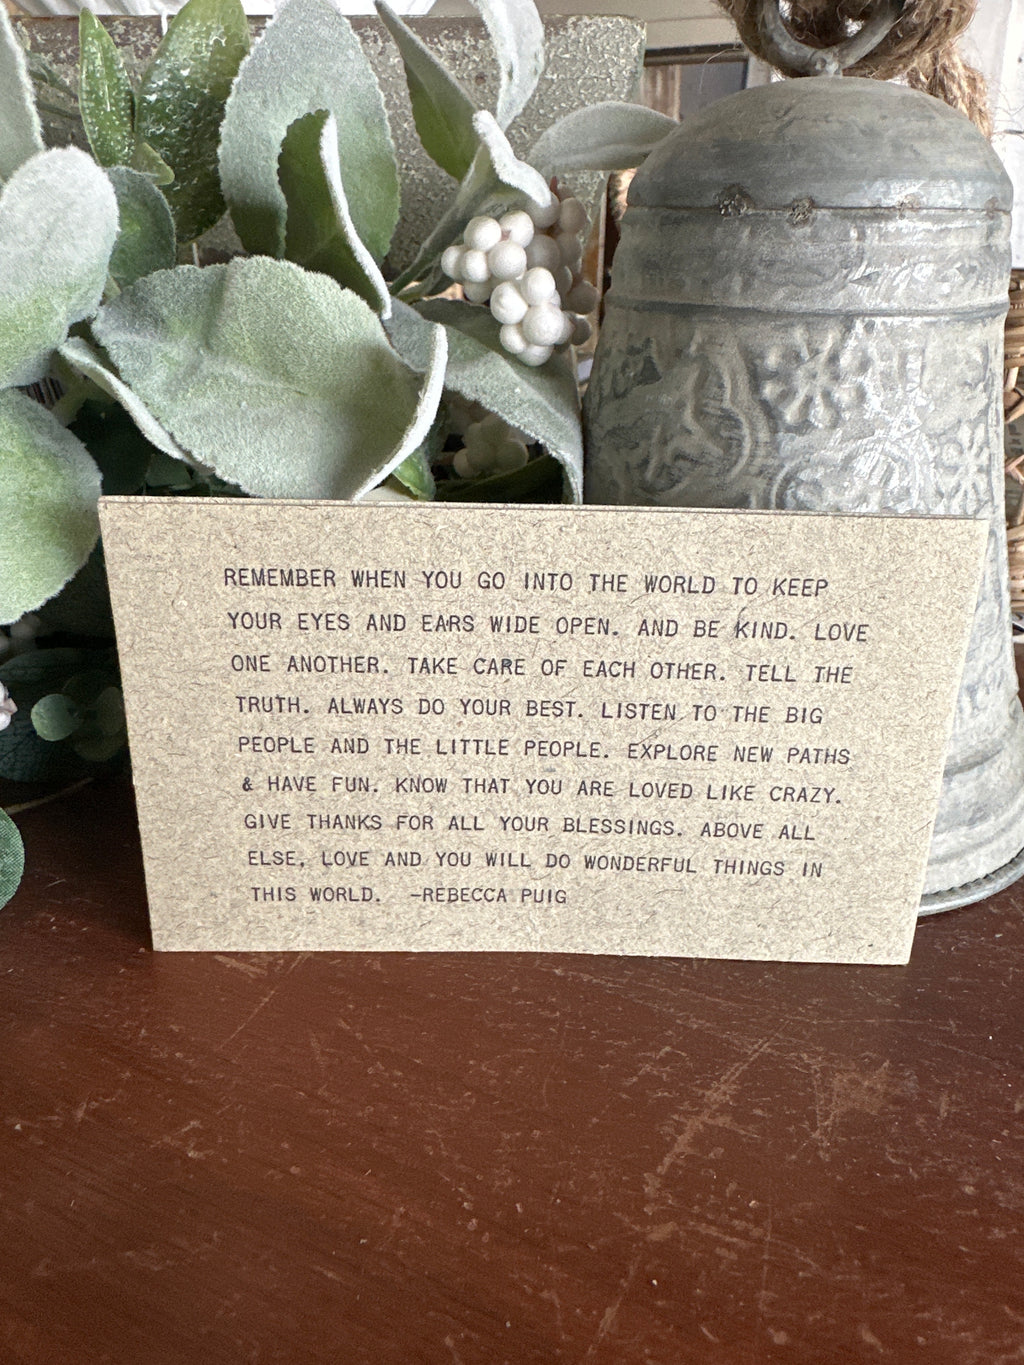 REMEMBER WHEN YOU GO INTO THE WORLD TO KEEP
YOUR EYES AND EARS WIDE OPEN. AND BE KIND. LOVE
ONE ANOTHER. TAKE CARE OF EACH OTHER. TELL THE
TRUTH. ALWAYS DO YOUR BEST. LISTEN TO THE BIG
PEOPLE AND THE LITTLE PEOPLE. EXPLORE NEW PATHS
& HAVE FUN. KNOW THAT YOU ARE LOVED LIKE CRAZY.
GIVE THANKS FOR ALL YOUR BLESSINGS. ABOVE ALL
ELSE, LOVE AND YOU WILL DO WONDERFUL THINGS IN
THIS WORLD. -REBECCA PUIG